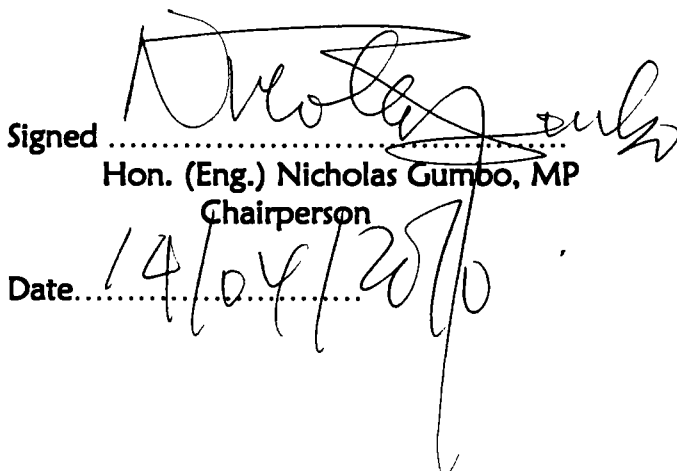 Signed ........................................................
Hon. (Eng.) Nicholas Gumbo, MP
Chairperson
Date 14/04/2010